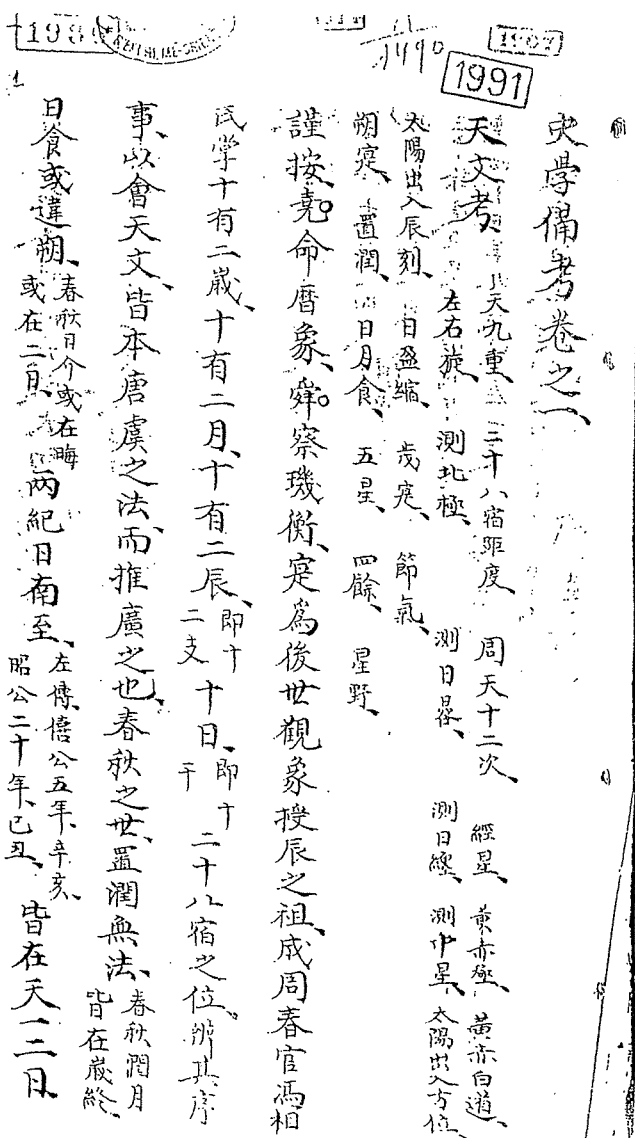 史學備考卷之一
天文考 天九重 二十八宿距度 周天十二次 經星 黃赤極 黃赤白道
左右旋 測北極 測日晷 測日纏 測中星 太陽出入方位
太陽出入辰刻 日盈縮 歲寔 節氣
朔寔 置潤 日月食 五星 四餘 星野
謹按堯命曆象舜察璣衡寔爲後世觀象授辰之祖成周春官馮相
氏掌十有二歲十有二月十有二辰即十二支十日即十干二十八宿之位辨其序
事以會天文皆本唐虞之法而推廣之也春秋之世置潤無法春秋潤月皆在歲終
日食或違朔春秋日介或在晦或在二日兩紀日南至左傳僖公五年辛亥昭公二十年己丑皆在天一二日
1991
1907
1490
1